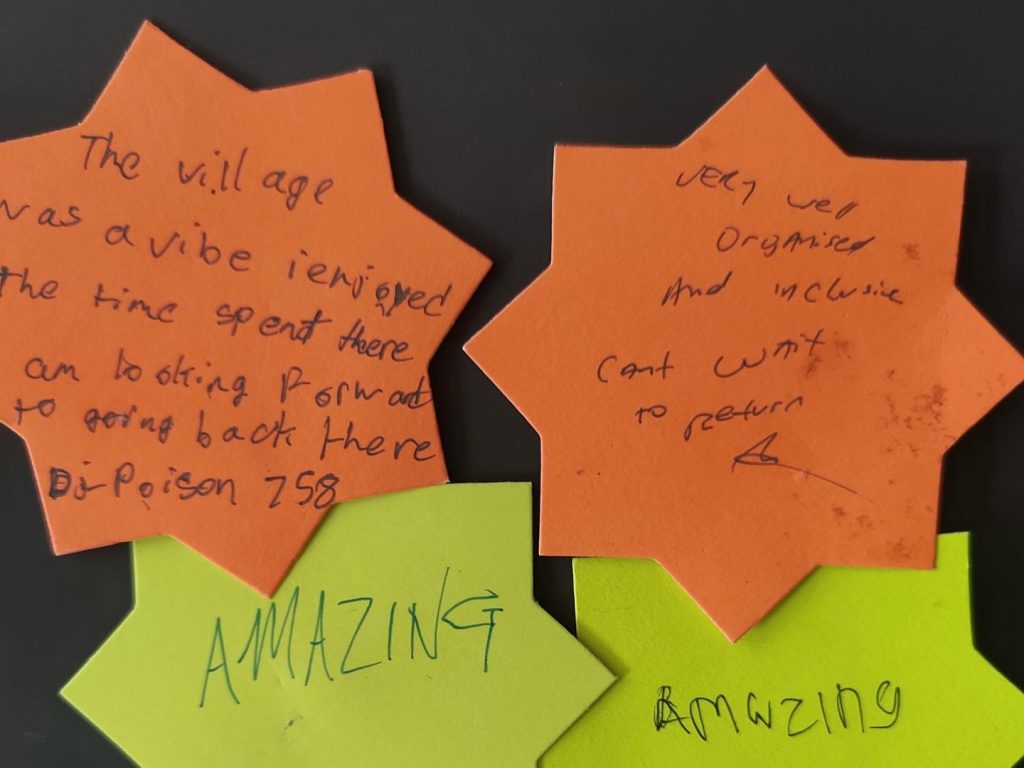 The village
was a vibe i enjoyed
the time spent there
am looking forward
to going back there
Dj-Poison 758
VERY well
Organised
And inclusive
Cant wait
to return
AMAZING
Amazing